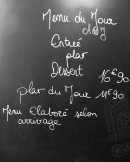 Menu du Jour
Entrée
plat
Dessert 16€90
plat du Jour 11€90
Menu Elaboré selon
arrivage